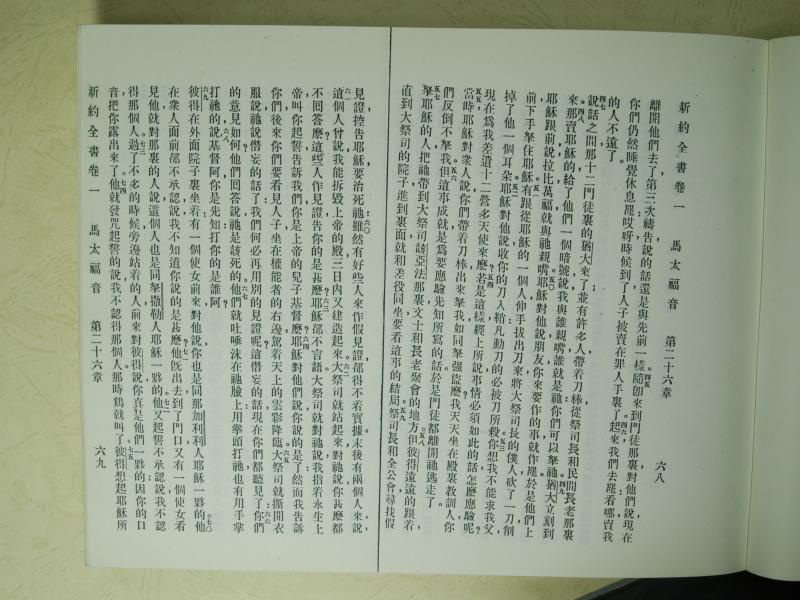 新約全書卷一　馬太福音　第二十六章　六八
離開他們去了第三次禱告說的話還是與先前一樣隨卽來到門徒那裏對他們說現在
你們仍然睡覺休息罷哎呀時候到了人子被賣在罪人手裏了起來我們去罷看哪賣我
的人不遠了
說話之間那十二門徒裏的猶大來了並有許多人帶着刀棒從祭司長和民間長老那裏
來那賣耶穌的給了他們一個暗號說我與誰親嘴誰就是祂你們可以拏祂猶大立刻到
耶穌跟前說拉比萬福就與祂親嘴耶穌對他說朋友你來要作的事就作罷於是他們上
前下手拏住耶穌有跟從耶穌的一個人伸手拔出刀來將大祭司長的僕人砍了一刀削
掉了他一個耳朵耶穌對他說收你的刀入鞘凡動刀的必被刀所殺你想我不能求我父
現在爲我差遣十二營多天使來麽若是這樣經上所說事情必須如此的話怎麽應驗呢
當時耶穌對衆人說你們帶着刀棒出來拏我如同拏强盜麽我天天坐在殿裏教訓人你
們反倒不拏我但這事成就是爲要應驗先知所寫的話於是門徒都離開祂逃走了
拏耶穌的人把祂帶到大祭司該亞法那裏文士和長老聚會的地方但彼得遠遠的跟着
直到大祭司的院子進到裏面就和差役同坐要看這事的結局祭司長和全公會尋找假
見證控告耶穌要治死祂雖然有好些人來作假見證卻得不着實據末後有兩個人來說
這個人曾說我能拆毀上帝的殿三日內又建造起來大祭司就站起來對祂說你甚麽都
不回答麽這些人作見證告你的是甚麽耶穌卻不言語大祭司就對祂說我指着永生上
帝叫你起誓告訴我們你是上帝的兒子基督麽耶穌對他們說你說的是了然而我告訴
你們後來你們要看見人子坐在權能者的右邊駕着天上的雲彩降臨大祭司就撕開衣
服說祂說僭妄的話了我們何必再用別的見證呢這僭妄的話現在你們都聽見了你們
的意見如何他們回答說祂是該死的他們就吐唾沫在祂臉上用拳頭打祂也有用手掌
打祂的說基督阿你是先知打你的是誰阿
彼得在外面院子裏坐着有一個使女前來對他說你也是同那加利利人耶穌一夥的他
在衆人面前卻不承認說我不知道你說的是甚麽他旣出去到了門口又有一個使女看
見他就對那裏的人說這個人也是同拏撒勒人耶穌一夥的他又起誓不承認說我不認
得那個人過了不多的時候旁邊站着的人前來對彼得說你真是他們一夥的因你的口
音把你露出來了他就發咒起誓的說我不認得那個人那時鷄就叫了彼得想起耶穌所
新約全書卷一　馬太福音　第二十六章　六九